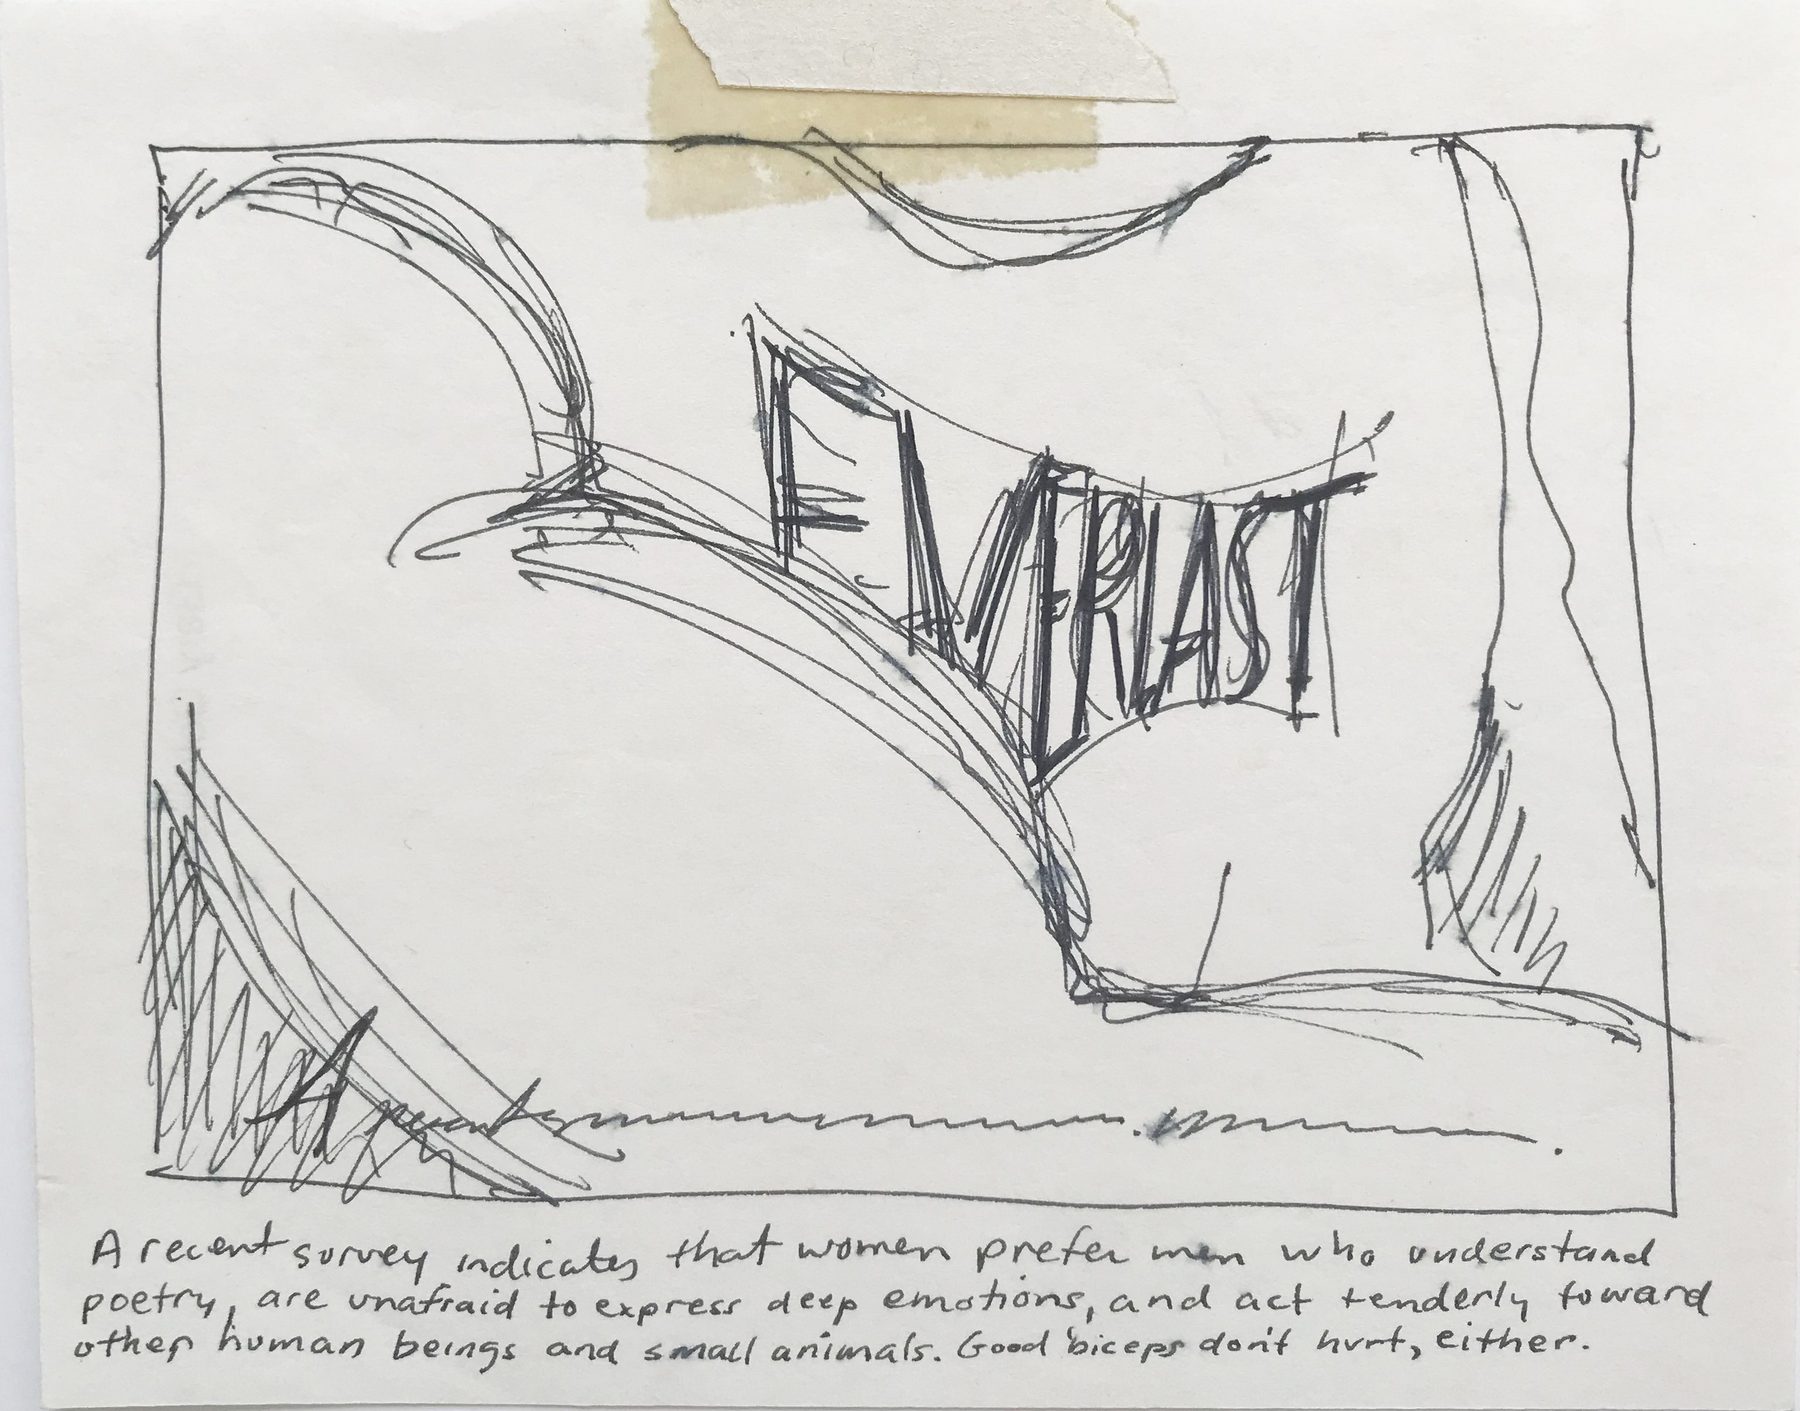 EVERLAST
A recent survey indicates that women prefer men who understand
poetry, are unafraid to express deep emotions, and act tenderly toward
other human beings and small animals. Good biceps don't hurt, either.